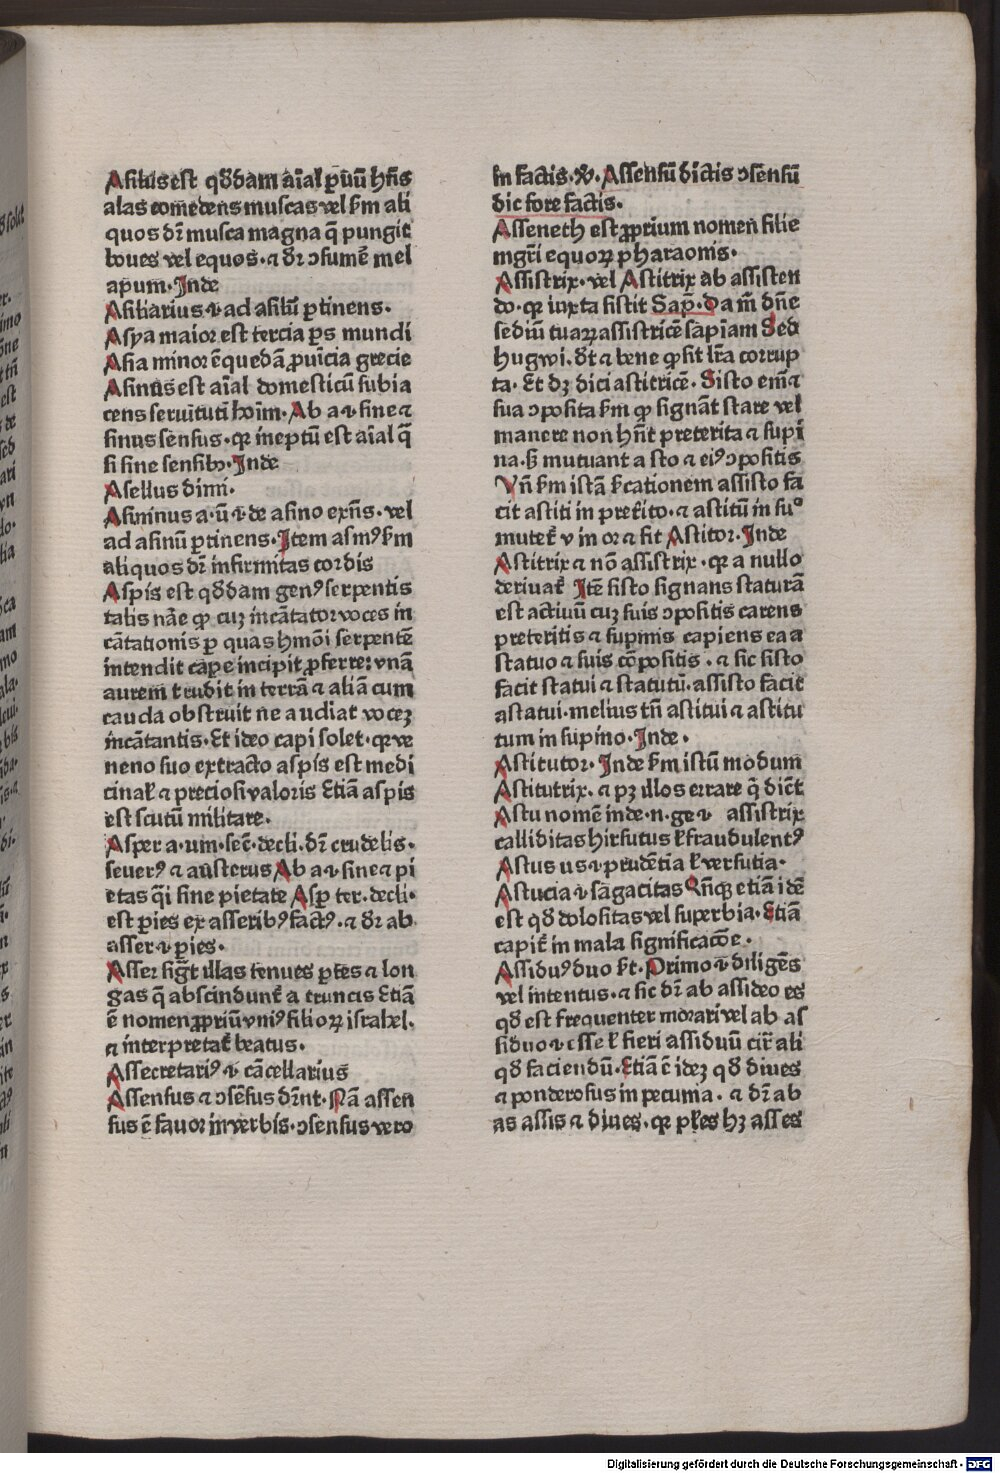 Asilus est qḋdam aīal ꝑuū hn̄s
alas comedens muscas vel ẜm ali
quos dr̄ musca magna q̄ pungit
boues vel equos · ⁊ dr̄ ꝯsumē mel
apum · Inde
Asiliarius ⁊ ad asilū ꝑtinens ·
Asya maior est tercia ꝑs mundi
Asia minor ē quedā ꝓuīcia grecie
Asinus est aīal domesticū subia
cens seruituti hoīm · Ab a ⁊ sine ⁊
sinus sensus · qꝛ ineptū est aīal q̄
si sine sensibꝰ · Inde
Asellus dimi ·
Asininus a · ū ⁊ de asino exn̄s · vel
ad asinū ꝑtinens · Item asmꝰ ẜm
aliquos dr̄ infirmitas cordis
Aspis est qḋdam genꝰ serpentis
talis nāe ꝙ cuꝫ incātator voces in
cātationis ꝑ quas hmōi serpentē
intendit capere incipit ꝓferre: vnā
aurem trudit in terrā ⁊ aliā cum
cauda obstruit ne audiat voceꝫ
incātantis · Et ideo capi solet · qꝛ ve
neno suo extracto aspis est medi
cinal̄ ⁊ preciosi valoris Etiā aspis
est scutū militare ·
Asper a · um · sec̄ · decli · dr̄ crudelis ·
seuerꝰ ⁊ austerus Ab a ⁊ sine ⁊ pi
etas q̄i sine pietate Asꝑ ter · decli ·
est ꝑies ex asseribꝰ factꝰ · ⁊ dr̄ ab
asser ⁊ ꝑies ·
Asser sigt̄ illas tenues ꝑtes ⁊ lon
gas q̄ abscindunt̄ a truncis Etiā
ē nomen ꝓpriū vniꝰ filioꝝ israhel ·
⁊ interpretat̄ beatus ·
Assecretariꝰ ⁊ cācellarius
Assensus ⁊ ꝯsēsus dr̄nt · Nā assen
sus ē fauor in verbis · ꝯsensus vero
in factis · vͤ · Assensū dictis ꝯsensū
dic fore factis ·
Asseneth est ꝓprium nomen filie
mgr̄i equoꝝ pharaonis ·
Assistrix · vel Astitrix ab assisten
do · qꝛ iuxta sistit Sap̄ · Da m̄ dn̄e
sediū tuaꝝ assistricē sapīam Sed
hugwi · dt̄ ⁊ bene ꝙ sit lr̄a corrup
ta · Et dꝫ dici astitricē · Sisto em̄ ⁊
sua ꝯposita ẜm ꝙ signāt stare vel
manere non hn̄t preterita ⁊ supi
na · sꝫ mutuant a sto ⁊ eiꝰ ꝯpositis
Vn̄ ẜm istā ẜcationem assisto fa
cit astiti in pret̄ito · ⁊ astitū in suᵒ
mutet̄ v in or ⁊ fit Astitor · Inde
Astitrix ⁊ nō assistrix · qꝛ a nullo
deriuat̄ Itē sisto signans staturā
est actiuū cuꝫ suis ꝯpositis carens
preteritis ⁊ supinis capiens ea a
statuo ⁊ suis cōpositis · ⁊ sic sisto
facit statui ⁊ statutū · assisto facit
astatui · melius tn̄ astitui ⁊ astitu
tum in supino · Inde ·
Astitutor · Inde ẜm istū modum
Astitutrix · ⁊ pꝫ illos errare q̄ dic̄t
Astu nomē inde · n · ge ⁊ assistrix
calliditas hirsutus ł fraudulentꝰ
Astus us ⁊ prudētia ł versutia ·
Astucia ⁊ sāgacitas Qn̄qꝫ etiā idē
est qḋ dolositas vel superbia · Etiā
capit̄ in mala significacōe ·
Assiduꝰ duo ẜt · Primo ⁊ diligēs
vel intentus · ⁊ sic dr̄ ab assideo es
qḋ est frequenter morari vel ab as
siduo ⁊ esse ł fieri assiduū cir̄ ali
qḋ faciendū · Etiā ē ideꝫ qḋ diues
⁊ ponderosus in pecunia · ⁊ dr̄ ab
as assis ⁊ diues · qꝛ pl̄es hꝫ asses
Digitalisierung gefördert durch die Deutsche Forschungsgemeinschaft - DFG